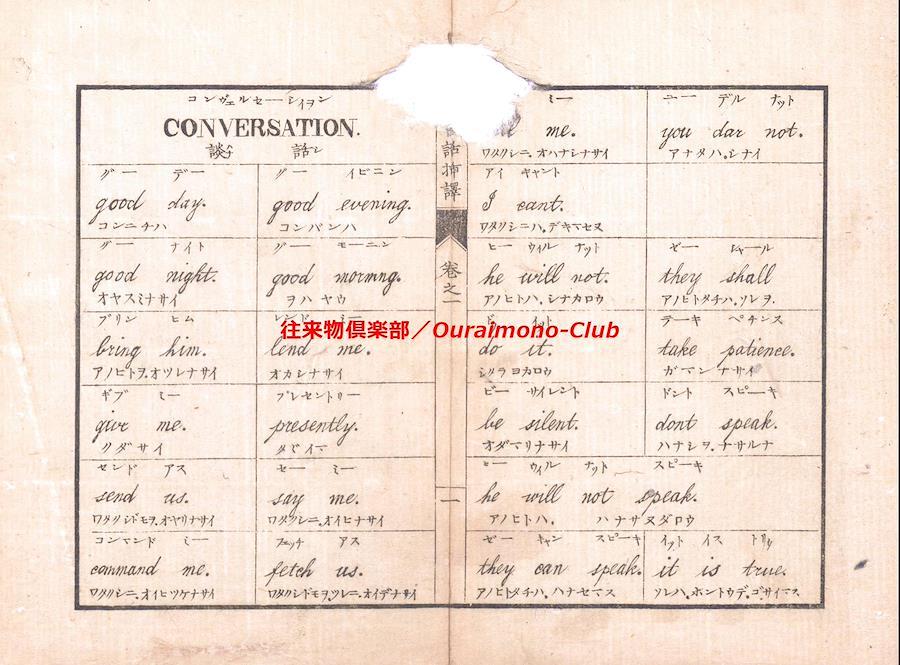 コンヴェルセーシイヲン
CONVERSATION.
談 話
グー デー
good day.
コンニチハ
グー イビニン
good evening.
コンバンハ
グー ナイト
good night.
オヤスミナサイ
グー モーニン
good morning.
ヲハヤウ
ブリン ヒム
bring him.
アノヒトヲ.オツレナサイ
レンド ミー
lend me.
オカシナサイ
ギブ ミー
give me.
クダサイ
プレセントリー
presently.
タヾイマ
センド アス
send us.
ワタクシドモヲ.オヤリナサイ
セー ミー
say me.
ワタクシニ.オイヒナサイ
コンマンド ミー
command me.
ワタクシニ.オイヒツケナサイ
フェッチ アス
fetch us.
ワタクシドモヲ.ツレニ.オイデナサイ
話挿譯
巻之一
一
ミー
me.
ワタクシニ.オハナシナサイ
ユー デル ナット
you dar not.
アナタハ.シナイ
アイ キャント
I cant.
ワタクシニハ.デキマセヌ
ヒー ウィル ナット
he will not.
アノヒトハ.シナカロウ
ゼー シャール
they shall
アノヒトタチハ.ソレヲ.
ド イット
do it.
シタラヨカロウ
テーキ ペチンス
take patience.
ガマンナサイ
ビー サイレント
be silent.
オダマリナサイ
ドント スピーキ
dont speak.
ハナシヲ.ナサルナ
ヒー ウィル ナット スピーキ
he will not speak.
アノヒトハ. ハナサヌダロウ
ゼー キャン スピーキ
they can speak.
アノヒトタチハ.ハナセマス
イット イス トリウ
it is true.
ソレハ.ホントウデ.ゴサイマス
往来物倶楽部／Ouraimono-Club